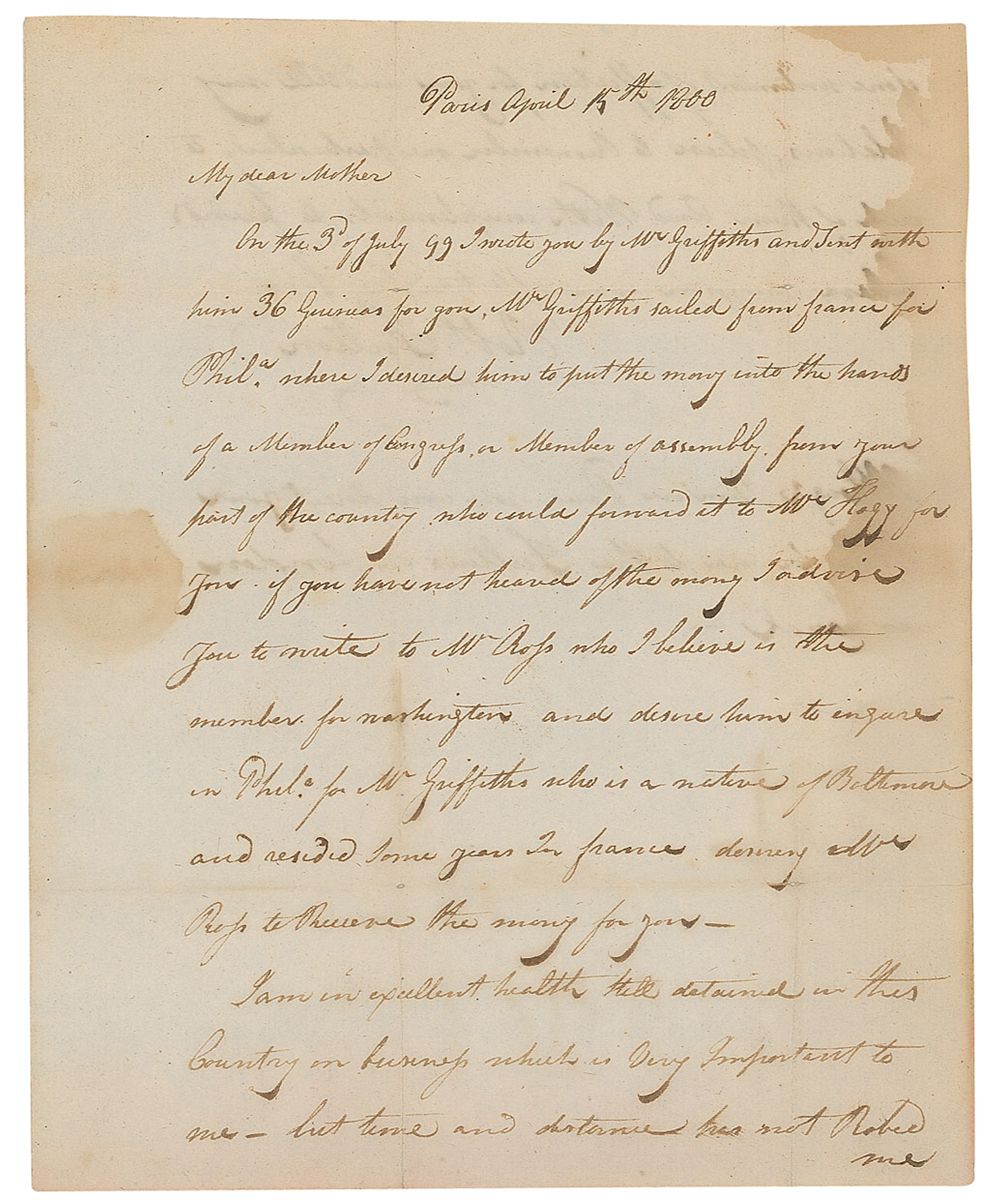 Paris April 15th 1800
My dear Mother
On the 3d of July 99 I wrote you by Mr Griffiths and Sent with
him 36 Guineas for you, Mr Griffiths sailed from france for
Phila. where I desired him to put the mony into the hands
of a Member of Congress, or Member of assembly. from your
part of the country who could forward it to Mr Hogy for
you. if you have not heared of the mony I advise
you to write to Mr Ross who I believe is the
member for washington and desire him to inquire
in Phila. for Mr Griffiths who is a native of Baltimore
and resided Some years In france desireing Mr
Ross to Receeve the mony for you —
I am in excellent health Still detained in this
Country on buisness which is Very Important to
me — but time and distance has not Robed
me